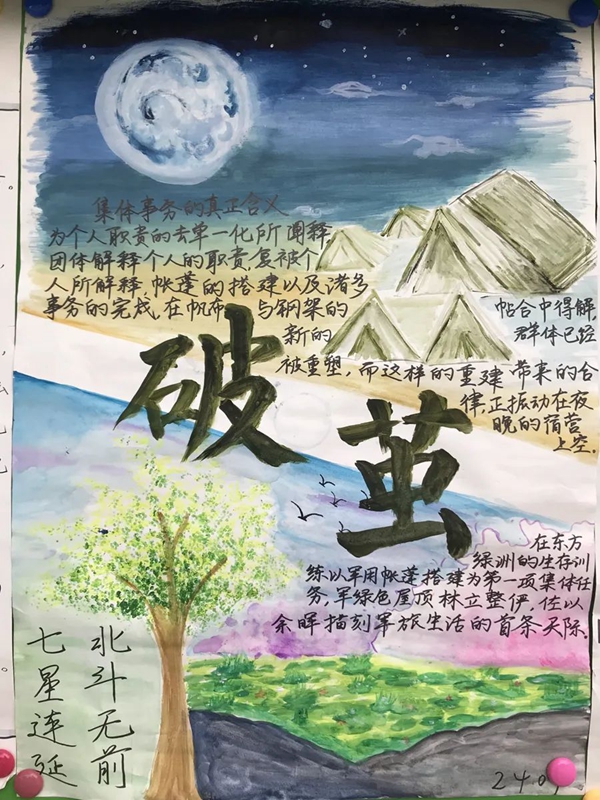 集体事务的真正含义
为个人职责的去单一化所阐释,
团体解释个人的职责,复被个
人所解释,帐蓬的搭建以及诸多
事务的完成,在帆布 与钢架的 帖合中得解,
新的 群体已经
被重塑,而这样的重建 带来的合
律,正振动在夜
晚的宿营
上空.
破茧
在东方
绿洲的生存训
练以军用帐蓬搭建为第一项集体任
务,军绿色屋顶林立整伊,佐以
余晖描刻军旅生活的首条天际.
北斗无前
七星连延
240